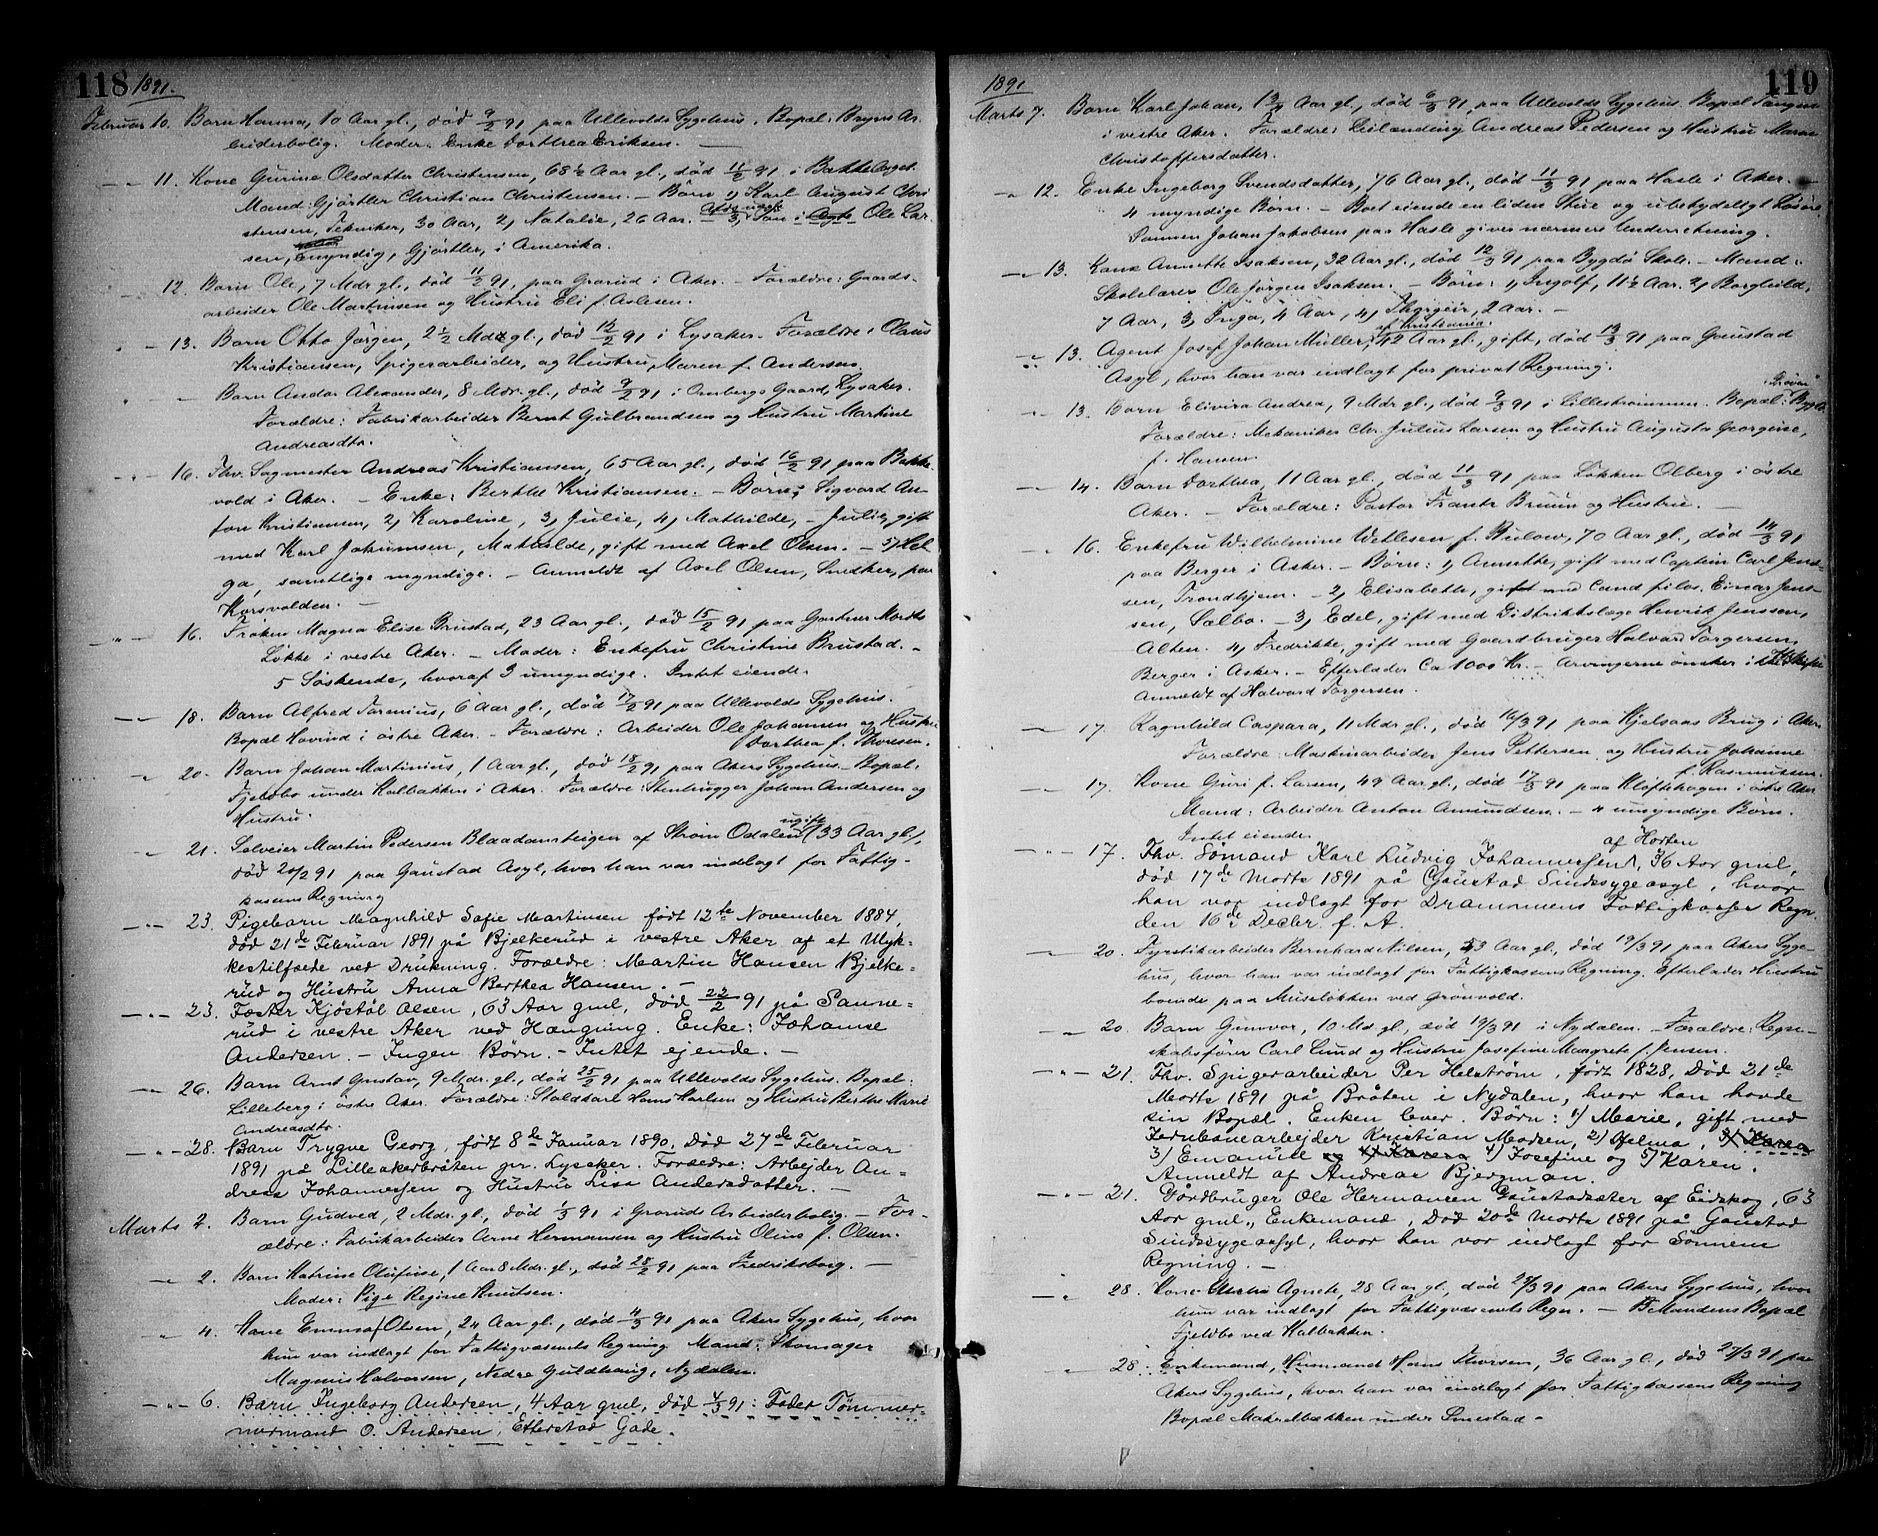 118 1891.
Februar 10. Barn Hanna, 10 Aar gl., død 9/2 91 paa Ullevolds Sygehus. Bopæl: Bryns Ar-
beiderbolig. Moder: Enke Dorthea Eriksen. —
— " — 11. Kone Gurine Olsdatter Christensen, 68½ Aar gl., død 11/2 91 i
Mand: Gjørtler Christian Christensen. — Børn 1, Karl August Chri
stensen, Tekniker, 30 Aar, 2, Natalie, 26 Aar. — 3, Søn i Ole Lar-
sen, myndig, Gjørtler, i Amerika.
12. Barn Ole, 7 Mdr gl., død 11/2 91, paa Grorud i Aker. — Forældre: Gaards-
arbeider Ole Martinsen og Hustru Eli f. Aslesen.
— 13. Barn Otto Jørgen, 2½ Mdr gl., død 12/2 91 i Lysaker. Forældre: Olaus
Kristiansen, Spigerarbeider, og Hustru Maren f. Andersen.
Barn Andor Alexander, 8 Mdr. gl., død 9/2 91 i Gaard, Lysaker.
Forældre: Fabrikarbeider Bernt Gulbrandsen og Hustru Martine
Andreasdtr.
— " — 16. Fhv. Sagmester Andreas Kristiansen, 65 Aar gl., død 16/2 91 paa Bakke
vold i Aker. — Enke: Berthe Kristiansen. — Børn: Sigvard An-
ton Kristiansen, 2, Karoline, 3, Julie, 4, Mathilde, — Julie, gift
med Karl Johannsen, Mathilde, gift med Axel Olsen. — 5, Hel
ga, samtlige myndige. — Anmeldt af Axel Olsen, Snedker, paa
Korsvolden. —
" — 16. Frøken Magna Elise Brustad, 23 Aar gl., død 15/2 91 paa Gartner
Løkke i vestre Aker. — Moder: Enkefru Christine Brustad. —
5 Søskende, hvoraf 3 umyndige. Intet eiende.
— " — 18. Barn Alfred, 6 Aar gl., død 17/2 91 paa Ullevolds Sygehus.
Bopæl Hovind i østre Aker. — Forældre: Arbeider Ole Johansen og Hustru
Dorthea f. Thoresen.
" 20. Barn Johan Martinius, 1 Aar gl., død 18/2 91 paa Akers Sygehus. — Bopæl:
Fjeldbo under Kalbakken i Aker. Forældre: Stenhugger Johan Andersen og
Hustru.
" 21. Selveier Martin Pedersen af Strøm Odalen ugift (33 Aar gl.),
død 20/2 91 paa Gaustad Asyl, hvor han var indlagt for Fattig-
kassens Regning
— " — 23. Pigebarn Magnhild Sofie Martinsen født 12te November 1884,
død 21de Februar 1891 på Bjelkerud i vestre Aker af et Ulyk-
kestilfælde ved Drukning. Forældre: Martin Hansen Bjelke-
rud og Hustru Anna Berthea Hansen. —
— " — 23. Foster Kjøstøl Olsen, 63 Aar gml, død 22/2 91 på Sanne-
rud i vestre Aker ved Hængning. Enke: Johanne
Andersen. — Ingen Børn. — Intet ejende. —
— " — 26. Barn Arnt Gustav, 9 Mdr. gl., død 25/2 91 paa Ullevolds Sygehus. Bopæl:
Lilleberg i østre Aker. Forældre: Staldkarl Hans Karlsen og Hustru Berthe Marie
Andreasdtr.
— " — 28. Barn Trygve Georg, født 8de Januar 1890, død 27de Februar
1891 på Lilleakerbråten pr. Lysaker. Forældre: Arbejder An-
dreas Johannessen og Hustru Lisa Andersdatter. —
Marts 2. Barn Gudved, 2 Mdr. gl., død 1/3 91 i Groruds Arbeiderbolig. — For-
ældre: Fabrikarbeider Arne Hermansen og Hustru Oline f. Olsen.
— " — 2. Barn Katrine Olufine, 1 Aar 8 Mdr. gl., død 28/2 91 paa Fredriksborg. —
Moder: Pige Regine Knutsen.
" 4. Kone Emma Olsen, 24 Aar gl., død 4/3 91 paa Akers Sygehus, hvor
hun var indlagt for Fattigvæsenets Regning Mand: Skomager
Magnus Halvorsen, Nedre Guldhaug, Nydalen.
— " — 6. Barn Ingeborg Andersen, 4 Aar gml, død 4/3 91: Fader Tømmer-
mermand O. Andersen, Etterstad Gade.
1891 119
Marts 7. Barn Karl Johan, Aar gl., død 6/3 91, paa Ullevolds Sygehus. Bopæl Tangen
i vestre Aker. Forældre: Leilænding Andreas Pedersen og Hustru Maren
Christoffersdatter.
" 12. Enke Ingeborg Svendsdatter, 76 Aar gl., død 11/3 91 paa Hasle i Aker. —
4 myndige Børn. — Boet eiende en liden Stue og ubetydeligt Løsøre
Sønnen Johan Jakobsen paa Hasle giver nærmere Underretning.
— " — 13. Kone Annette Isaksen, 32 Aar gl., død 12/3 91 paa Bygdø Skole. — Mand:
Skolelærer Ole Jørgen Isaksen. — Børn: 1, Ingolf, 11½ Aar. 2, Borghild,
7 Aar, 3, Inga, 4 Aar, 4, Thorgeir, 2 Aar. —
af Kristiania.
— " 13. Agent Josef Johan Müller, 42 Aar gl., gift, død 13/3 91 paa Gaustad
Asyl, hvor han var indlagt for privat Regning.
" 13. Barn Elivira Andrea, 9 Mdr gl., død 9/3 91 i Lillestrømmen. Bopæl:
Forældre: Mekaniker Chr. Julius Larsen og Hustru Augusta Georgine,
f. Hansen.
— " — 14. Barn Dorthea, 11 Aar gl., død 11/3 91 paa Løkken Olberg i østre
Aker. — Forældre: Pastor Frants Bruun og Hustru. —
" 16. Enkefru Wilhelmine Wetlesen f. Bulow, 70 Aar gl., død 14/3 91
paa Berger i Asker. — Børn: 1, Annette, gift med Captein Carl Jens-
sen, Trondhjem. — 2, Elisabeth, gift med Cand filos. Einar Jens-
sen, Sælbo. — 3, Edel, gift med Distriktslæge Henrik Jenssen,
Alten. 4, Fredrikke, gift med Gaardbruger Halvard Torgersen,
Berger i Asker. — Efterlader Ca 1000 Kr. — Arvingerne ønsker
Anmeldt af Halvard Torgersen.
— " — 17. Ragnhild Caspara, 11 Mdr gl., død 16/3 91 paa Kjelsaas Brug i Aker.
Forældre: Maskinarbeider Jens Pettersen og Hustru Johanne
f. Rasmussen.
— " — 17. Kone Guri f. Larsen, 49 Aar gl., død 17/3 91 paa Kloftehagen i østre Aker
Mand: Arbeider Anton Amundsen. — 4 umyndige Børn.
Intet eiende.
— " — 17. Fhv. Sømand Karl Ludvig Johannessen, af Horten 36 Aar gml,
død 17de Marts 1891 på Gaustad Sindssygeasyl, hvor
han var indlagt for Drammens Fattigkasses Regn.
den 16de Decbr. f. A.
" 20. Fyrstikarbeider Bernhard Nilsen, 53 Aar gl., død 19/3 91 paa Akers Syge-
hus, hvor han var indlagt for Fattigkassens Regning. Efterlader Hustru
boende paa Muselökken ved Grønvold.
— " — 20. Barn Gunvor, 10 Md gl., død 19/3 91 i Nydalen. — Forældre: Regn-
skabsfører Carl Lund og Hustru Josefine Margrete f. Jensen.
— " — 21. Fhv. Spigerarbeider Per Helstrøm, født 1828, død 21de
Marts 1891 på Bråten i Nydalen, hvor han havde
sin Bopæl. Enken lever. Børn: 1) Marie, gift med
Jernbanearbejder Kristian Madsen, 2) Helma, 3) Karen
3) Emanuel og 4) Karen 4) Josefine og 5) Karen.
Anmeldt af Andreas Bjergman.
— " — 21. Gårdbruger Ole Hermansen Gaustadsæter af Eidskog, 63
Aar gml., Enkemand, død 20de Marts 1891 på Gaustad
Sindssygeasyl, hvor han var indlagt for Sønnens
Regning. —
— " 28. Kone Agnete, 28 Aar gl., død 27/3 91 paa Akers Sygehus, hvor
hun var indlagt for Fattigvæsenets Regn. — Mandens Bopæl
Fjeldbo ved Kalbakken.
" 28. Enkemand, Husmand Hans Thorsen, 36 Aar gl., død 27/3 91 paa
Akers Sygehus, hvor han var indlagt for Fattigkassens Regning
Bopæl Makrelbækken under Smestad —